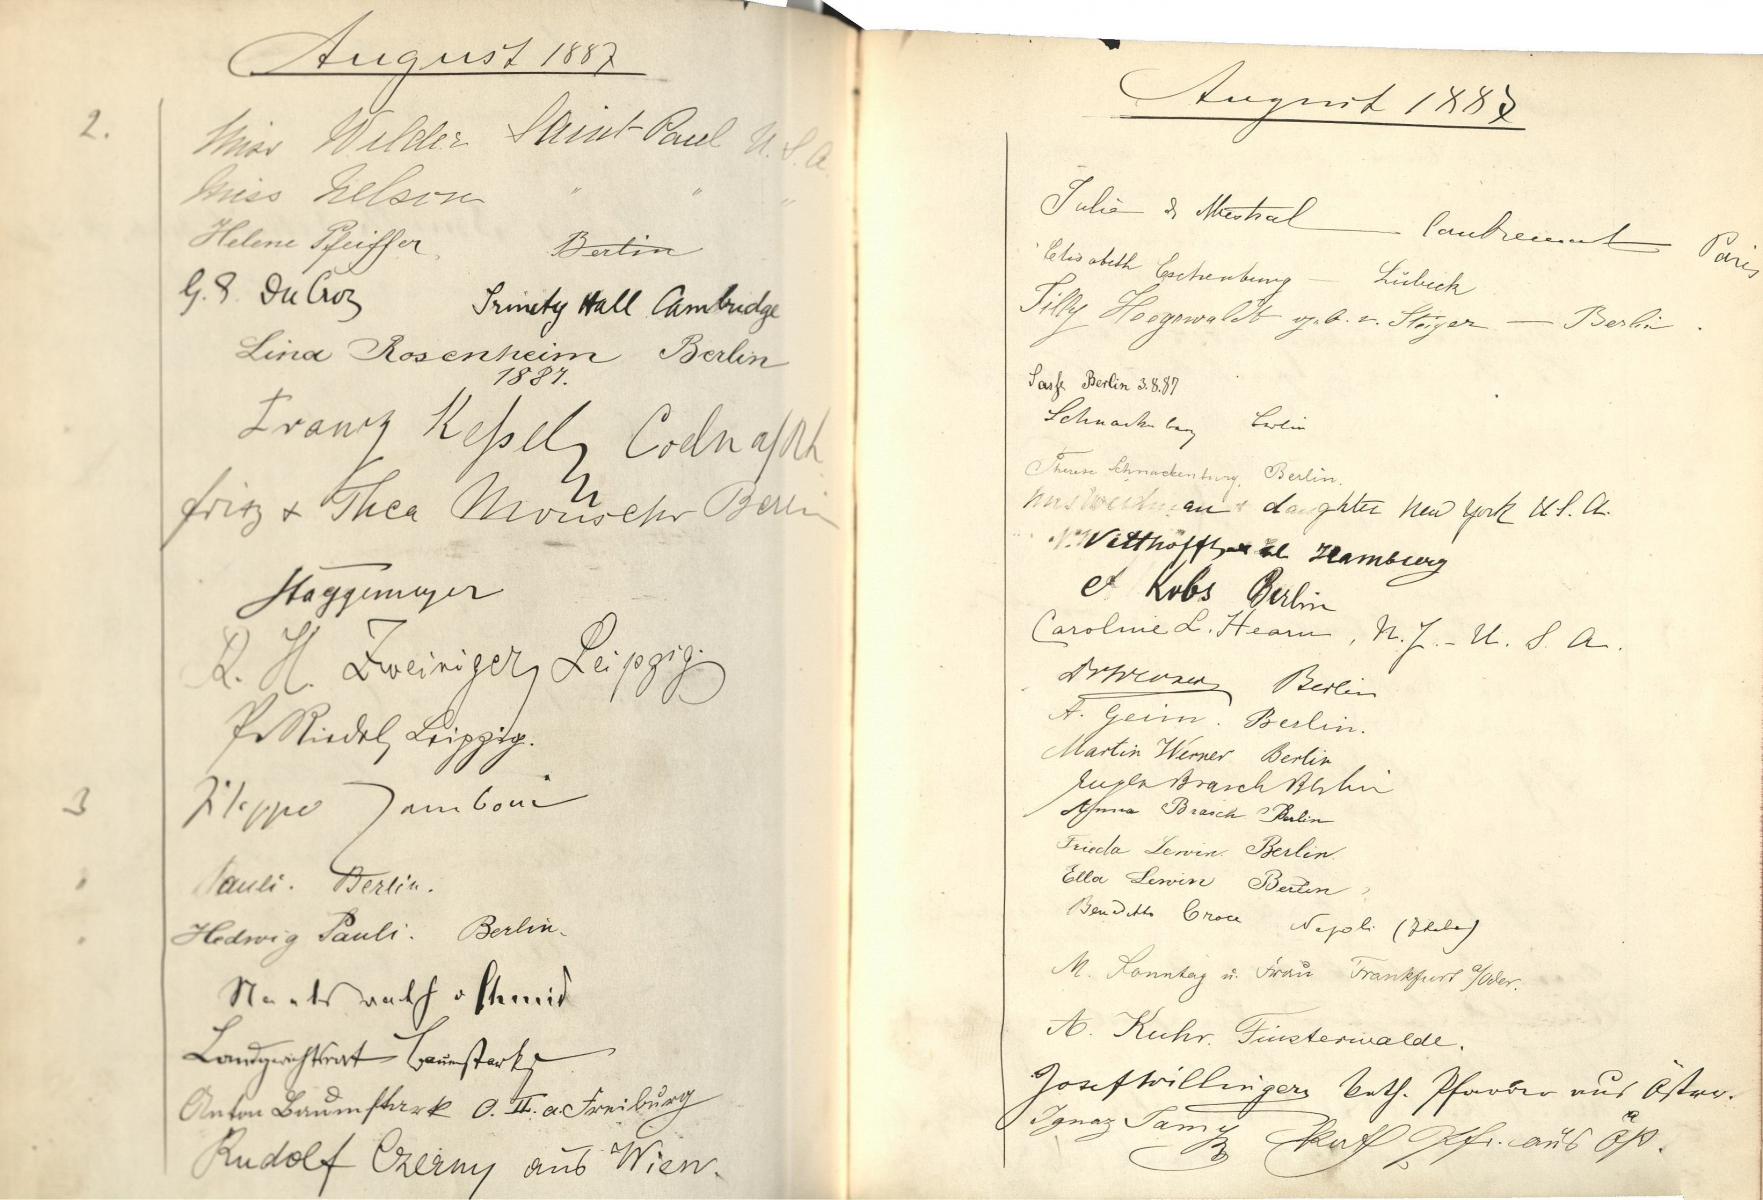 August 1887
2.
Miss Wilder Saint-Paul U. S. A.
Miss Nelson " " "
Helene Pfeiffer. Berlin
G. Du Croz Trinity Hall Cambridge
Lina Rosenheim Berlin
1887.
Franz Kessel Coeln a/Rh
Fritz & Thea Berlin
Haggemeyer
R. H. Zweiniger, Leipzig.
Riedel, Leipzig.
3
Zamboni
Pauli. Berlin.
Hedwig Pauli. Berlin.
Schmid
Landgerichtsrat Baumstark
Anton Baumstark O. II. a Freiburg
Rudolf Czerny aus Wien.
August 1887
Julie de Mestral Paris
Elisabeth Eschenburg — Lübeck
Tilly Hoegewaldt v. Steiger — Berlin.
Berlin 3.8.87
Schnackenburg Berlin
Therese Schnackenburg. Berlin.
daughter New York U. S. A.
Hamburg
Kobs Berlin
Caroline L. Hearn, N. J. - U. S. A.
Berlin
A. Geim. Berlin.
Martin Werner Berlin
Brasch Berlin
Anna Brasch Berlin
Frieda Lewin. Berlin.
Ella Lewin Berlin
Benedetto Croce Napoli (Italia)
M. Sonntag u. Frau Frankfurt a/Oder.
A. Kuhr. Finsterwalde.
Josef Willinger, kath. Pfarrer aus Österr.
Ignaz Pfr. aus Öst.